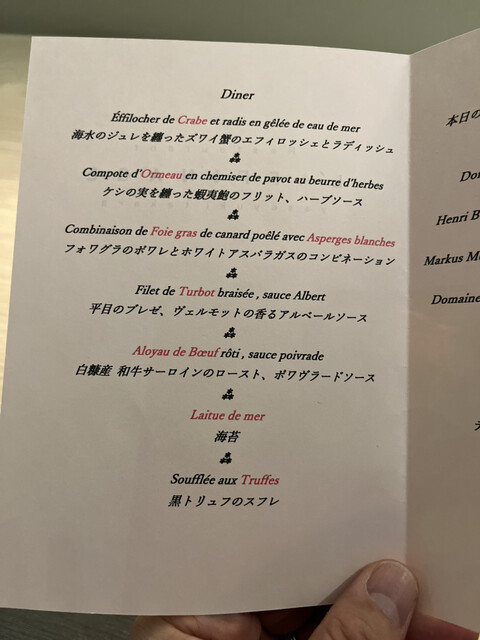 Diner
Éffilocher de Crabe et radis en gêlée de eau de mer
海水のジュレを纏ったズワイ蟹のエフィロッシェとラディッシュ
Compote d'Ormeau en chemiser de pavot au beurre d'herbes
ケシの実を纏った蝦夷鮑のフリット、ハーブソース
Combinaison de Foie gras de canard poêlé avec Asperges blanches
フォワグラのポワレとホワイトアスパラガスのコンビネーション
Filet de Turbot braisée , sauce Albert
平目のブレゼ、ヴェルモットの香るアルベールソース
Aloyau de Bœuf rôti , sauce poivrade
白糠産 和牛サーロインのロースト、ポワヴラードソース
Laitue de mer
海苔
Soufflée aux Truffes
黒トリュフのスフレ
本日の
Do
Henri B
Markus M
Domaine